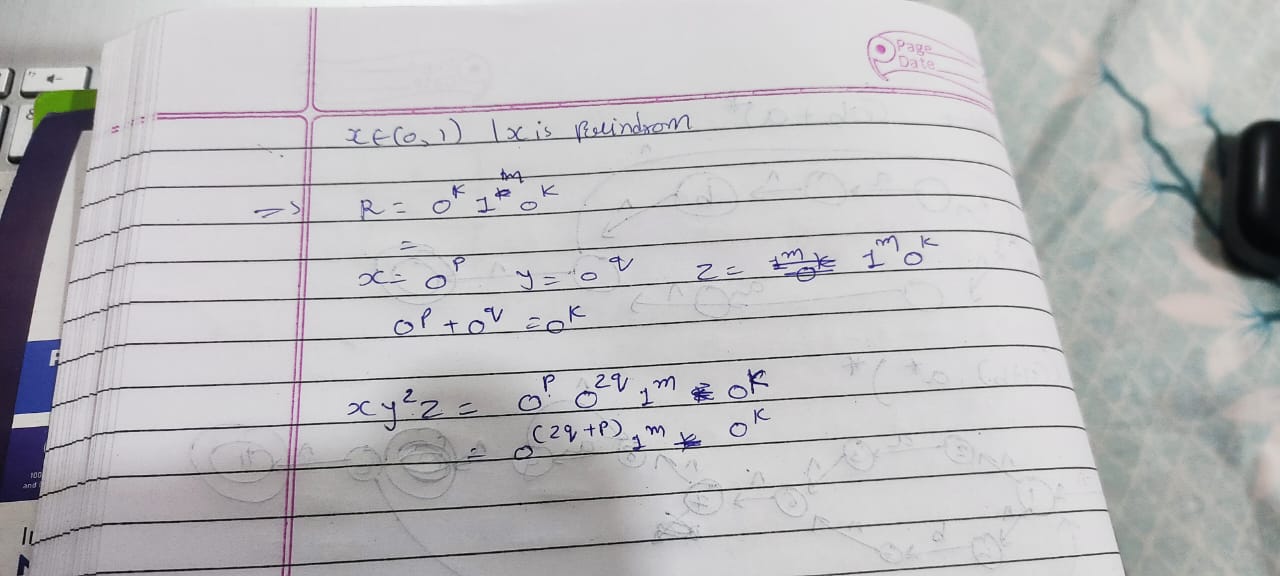 Page
Date
x ∈ (0, 1) | x is Palindrom
=> R = 0^k 1^m 0^k
=
x = 0^p y = 0^q z = 1^m 0^k
0^p + 0^q = 0^k
xy^2z = 0^p 0^2q 1^m 0^k
= 0^(2q+p) 1^m 0^k